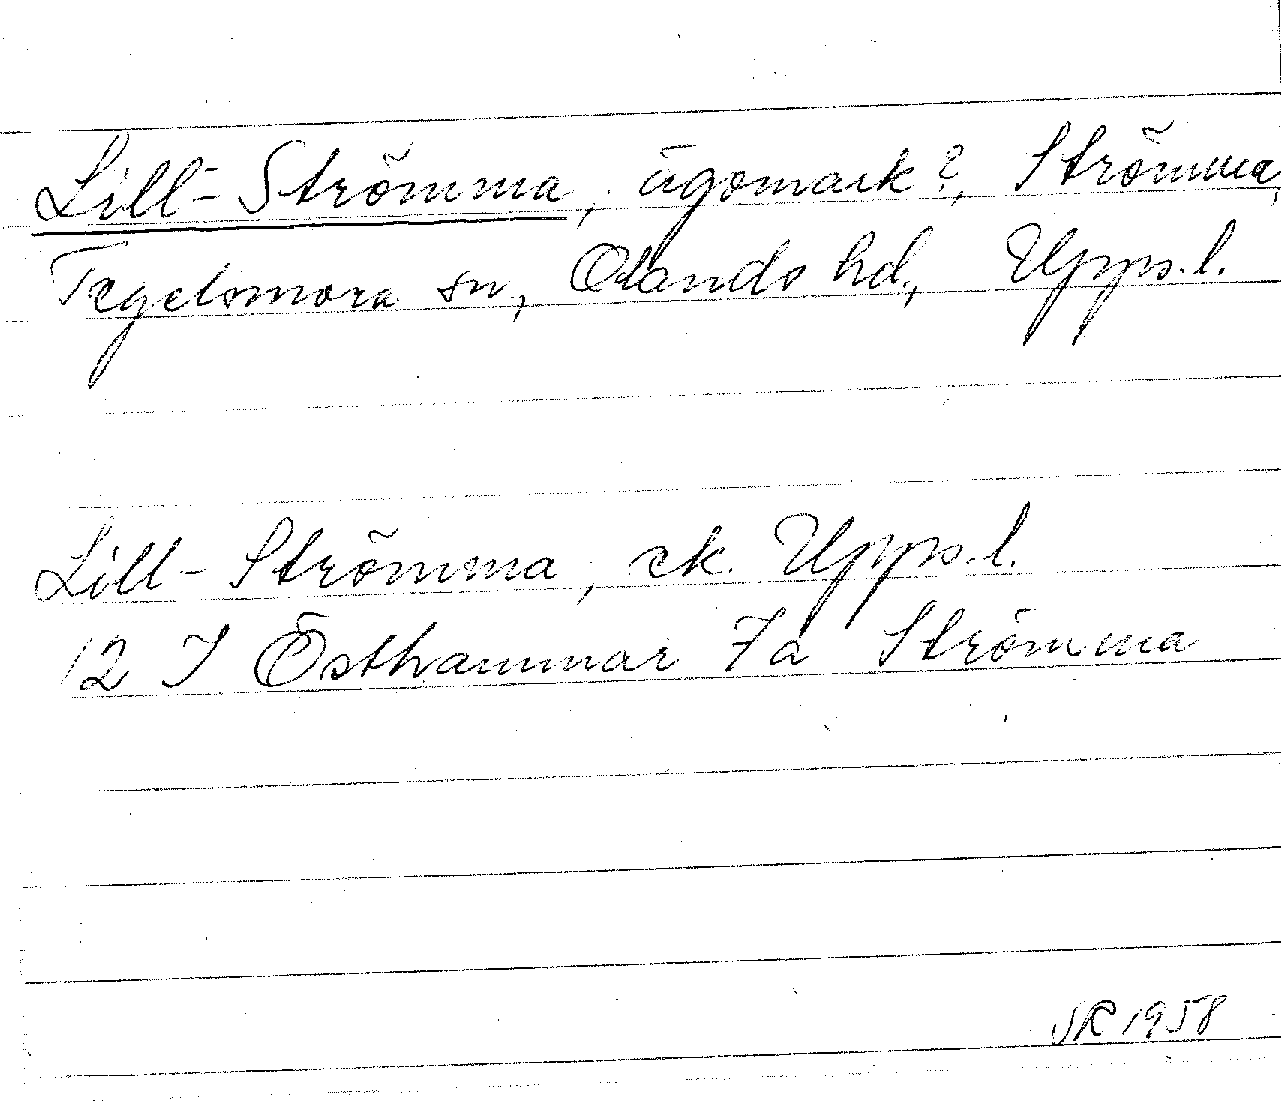 Lill-Strömma, ägomark?, Strömma,
Tegelsmora sn, Olands hd., Upps.l.
Lill-Strömma, ek. Upps.l.
12 I Östhammar 7a Strömma
SR 1958